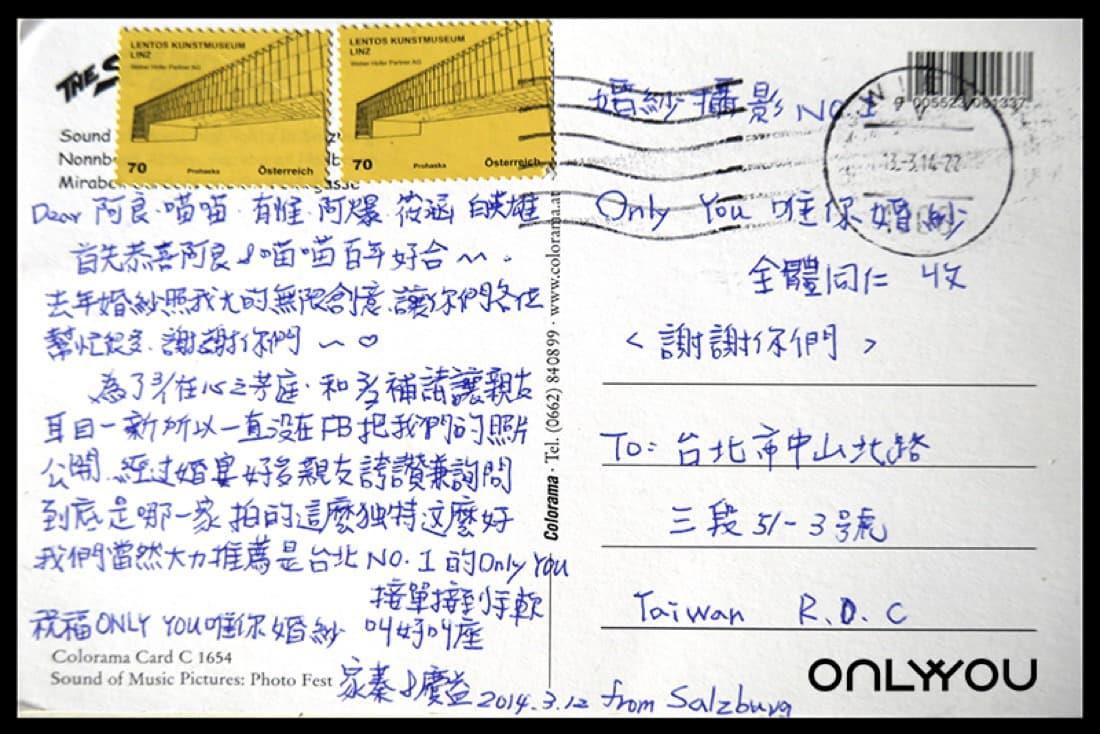 LENTOS KUNSTMUSEUM
LINZ
Weber Hofer Partner AG
70 Prohaska Österreich
LENTOS KUNSTMUSEUM
LINZ
Weber Hofer Partner AG
70 Prohaska Österreich
THE S
Sound
Nonnb
Mirabe
Dear 阿良.喵喵.有惟.阿爆.筱涵 白英雄
首先恭喜阿良&喵喵百年好合~~.
去年婚紗照我尢的無限創意.讓你們各位
幫忙很多.謝謝你們 ~ ♡
為了引在心之芳庭.和 補請讓親友
耳目一新所以一直沒在FB把我們的照片
公開.經过婚宴好多親友誇讚兼詢問
到底是哪一家拍的這麼独特这麼好
我們當然大力推薦是台北NO.1的Only YOU
接單接到手軟
祝福ONLY YOU唯你婚紗 叫好叫座
Colorama Card C 1654
Sound of Music Pictures: Photo Fest
家蓁&慶益 2014.3.12 from Salzburg
Colorama · Tel. (0662) 840899 · www.colorama.at
9 005523 081337
13.-3.14-22
婚紗攝影 NO 1
Only You 唯你婚紗
全體同仁 收
<謝謝你們>
To: 台北市中山北路
三段51-3號
Taiwan R.O.C
ONLYYOU